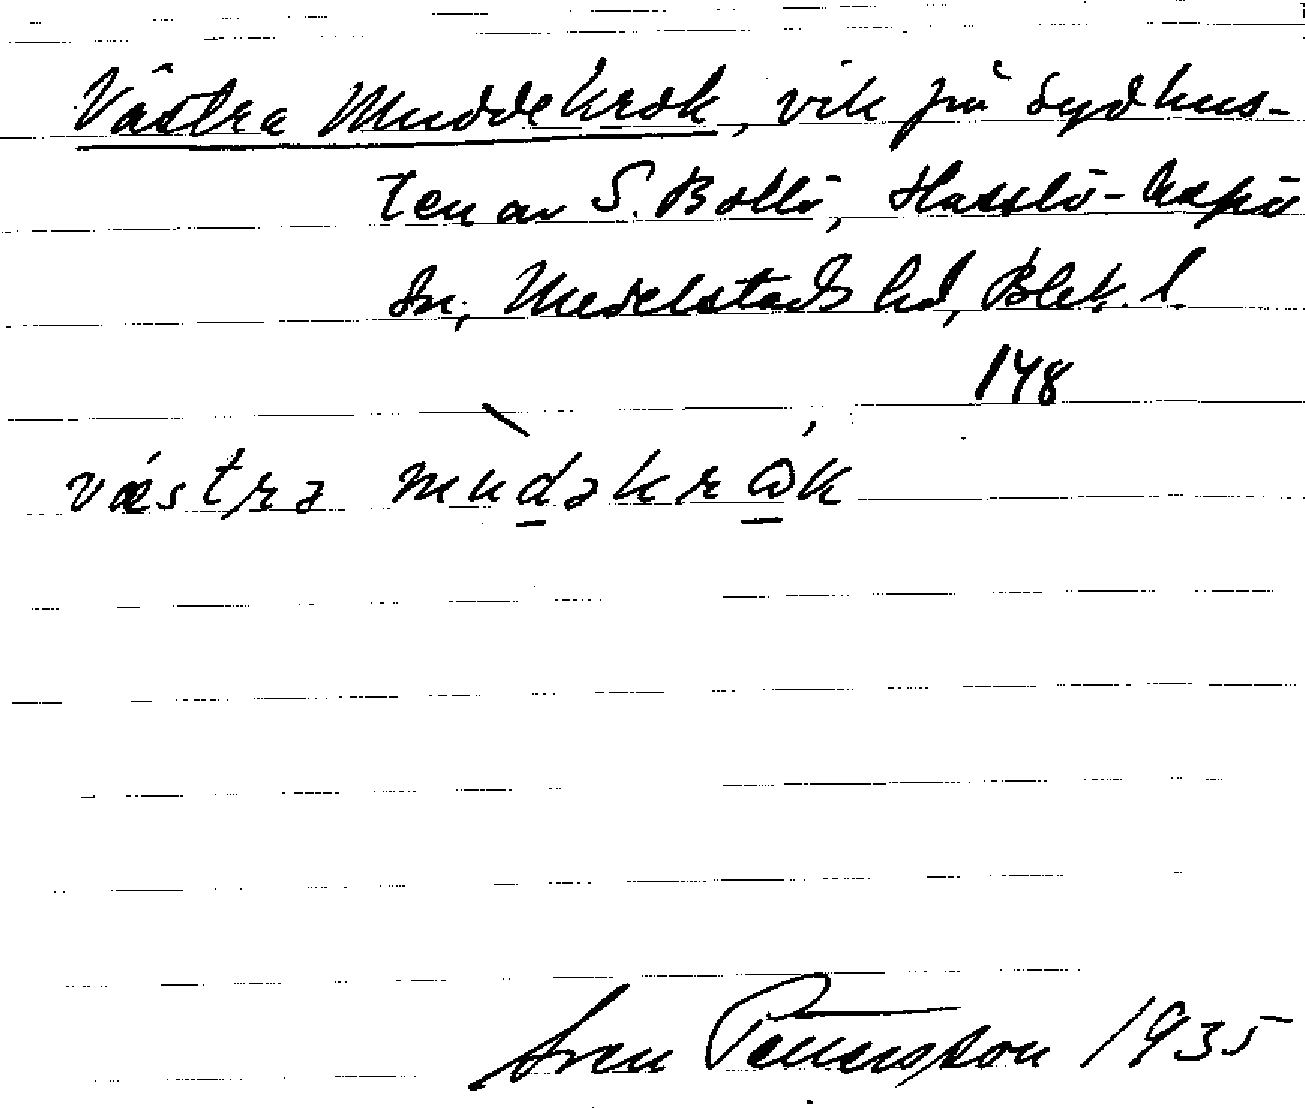 Västra Muddekrok, vik på sydkus-
ten av S. Bollö, Hasslö-Aspö
sn, Medelstads hd, Blek. l.
148
västrə mudəkrɷk
Sven Pettersson 1935